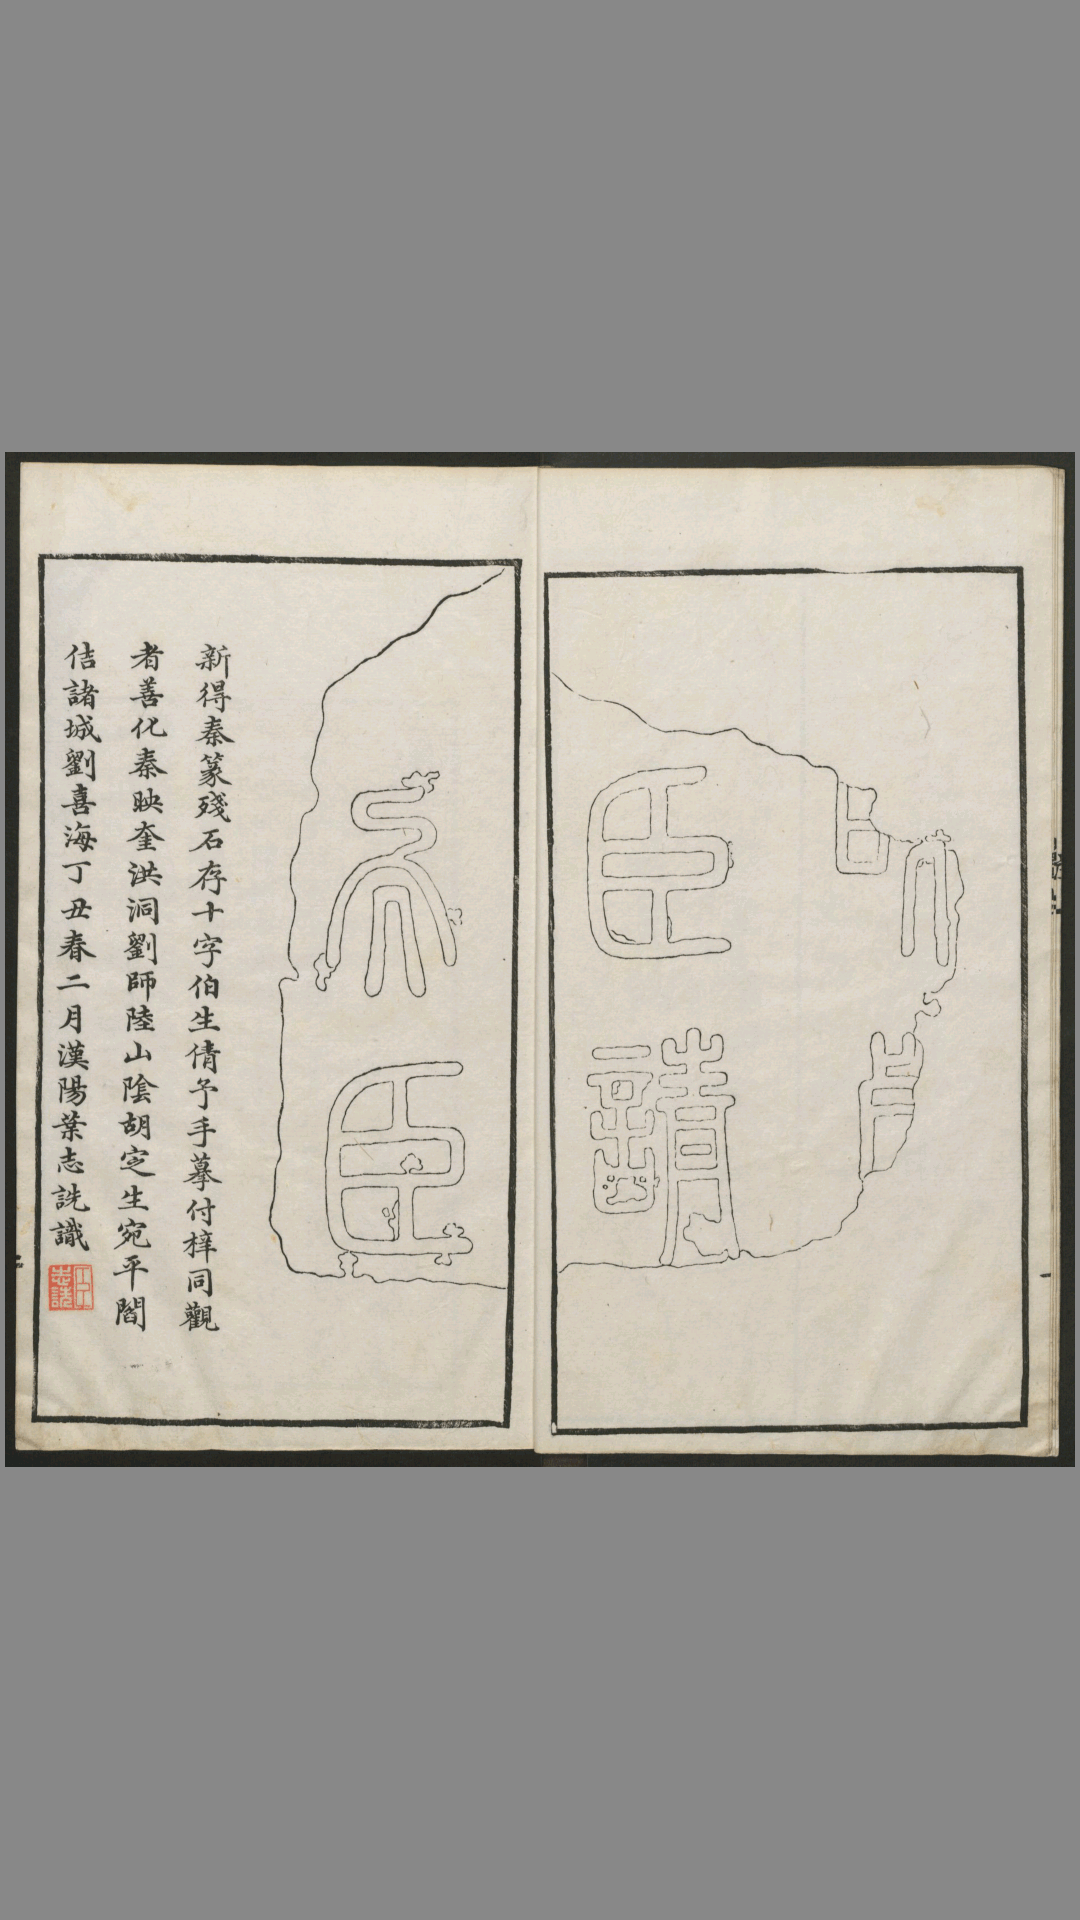 臣請
矣臣
新得秦篆殘石存十字伯生倩予手摹付梓同觀
者善化秦映奎洪洞劉師陸山陰胡㝎生宛平閻
佶諸城劉喜海丁丑春二月漢陽葉志詵識
志詵